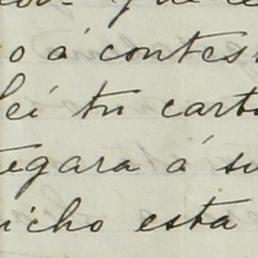 o á contes
leí tu cart
egara á su
icho esta